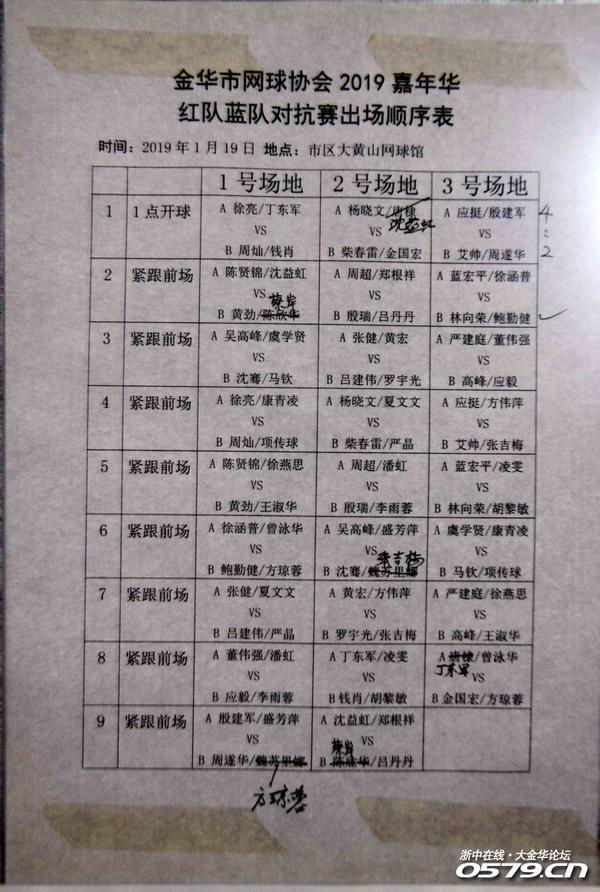 金华市网球协会 2019 嘉年华
红队蓝队对抗赛出场顺序表
时间：2019 年 1 月 19 日 地点：市区大黄山网球馆
1 号场地 2 号场地 3 号场地
1 1 点开球
A 徐亮/丁东军 VS B 周灿/钱肖
A 杨晓文/唐棣 沈益虹 VS B 柴春雷/金国宏
A 应挺/殷建军 VS B 艾帅/周遂华
4:2
2 紧跟前场
A 陈贤锦/沈益虹 VS B 黄劲/陈欣华
A 周超/郑根祥 VS B 殷瑞/吕丹丹
A 蓝宏平/徐涵普 VS B 林向荣/鲍勤健
3 紧跟前场
A 吴高峰/虞学贤 VS B 沈骞/马钦
A 张健/黄宏 VS B 吕建伟/罗宇光
A 严建庭/董伟强 VS B 高峰/应毅
4 紧跟前场
A 徐亮/康青凌 VS B 周灿/项传球
A 杨晓文/夏文文 VS B 柴春雷/严晶
A 应挺/方伟萍 VS B 艾帅/张吉梅
5 紧跟前场
A 陈贤锦/徐燕思 VS B 黄劲/王淑华
A 周超/潘虹 VS B 殷瑞/李雨蓉
A 蓝宏平/凌雯 VS B 林向荣/胡黎敏
6 紧跟前场
A 徐涵普/曾泳华 VS B 鲍勤健/方琼蓉
A 吴高峰/盛芳萍 VS B 沈骞/魏苏里娜 张吉梅
A 虞学贤/康青凌 VS B 马钦/项传球
7 紧跟前场
A 张健/夏文文 VS B 吕建伟/严晶
A 黄宏/方伟萍 VS B 罗宇光/张吉梅
A 严建庭/徐燕思 VS B 高峰/王淑华
8 紧跟前场
A 董伟强/潘虹 VS B 应毅/李雨蓉
A 丁东军/凌雯 VS B 钱肖/胡黎敏
A 唐棣/曾泳华 丁东军 VS B 金国宏/方琼蓉
9 紧跟前场
A 殷建军/盛芳萍 VS B 周遂华/魏苏里娜
A 沈益虹/郑根祥 VS B 陈欣华/吕丹丹
方琼蓉
浙中在线·大金华论坛
0579.CN